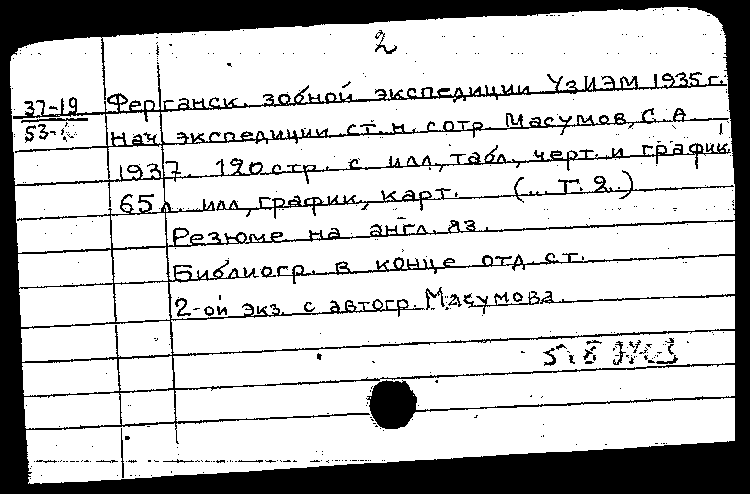 2
37-19 Ферганск. зобной экспедиции УзИЭМ 1935 г.
53- Нач. экспедиции ст. н. сотр. Масумов, С. А.
1937. 120 стр. с илл., табл., черт. и график.
65 л. илл., график., карт. (... Т. 2..)
Резюме на англ. яз.
Библиогр. в конце отд. ст.
2-ой экз. с автогр. Масумова.